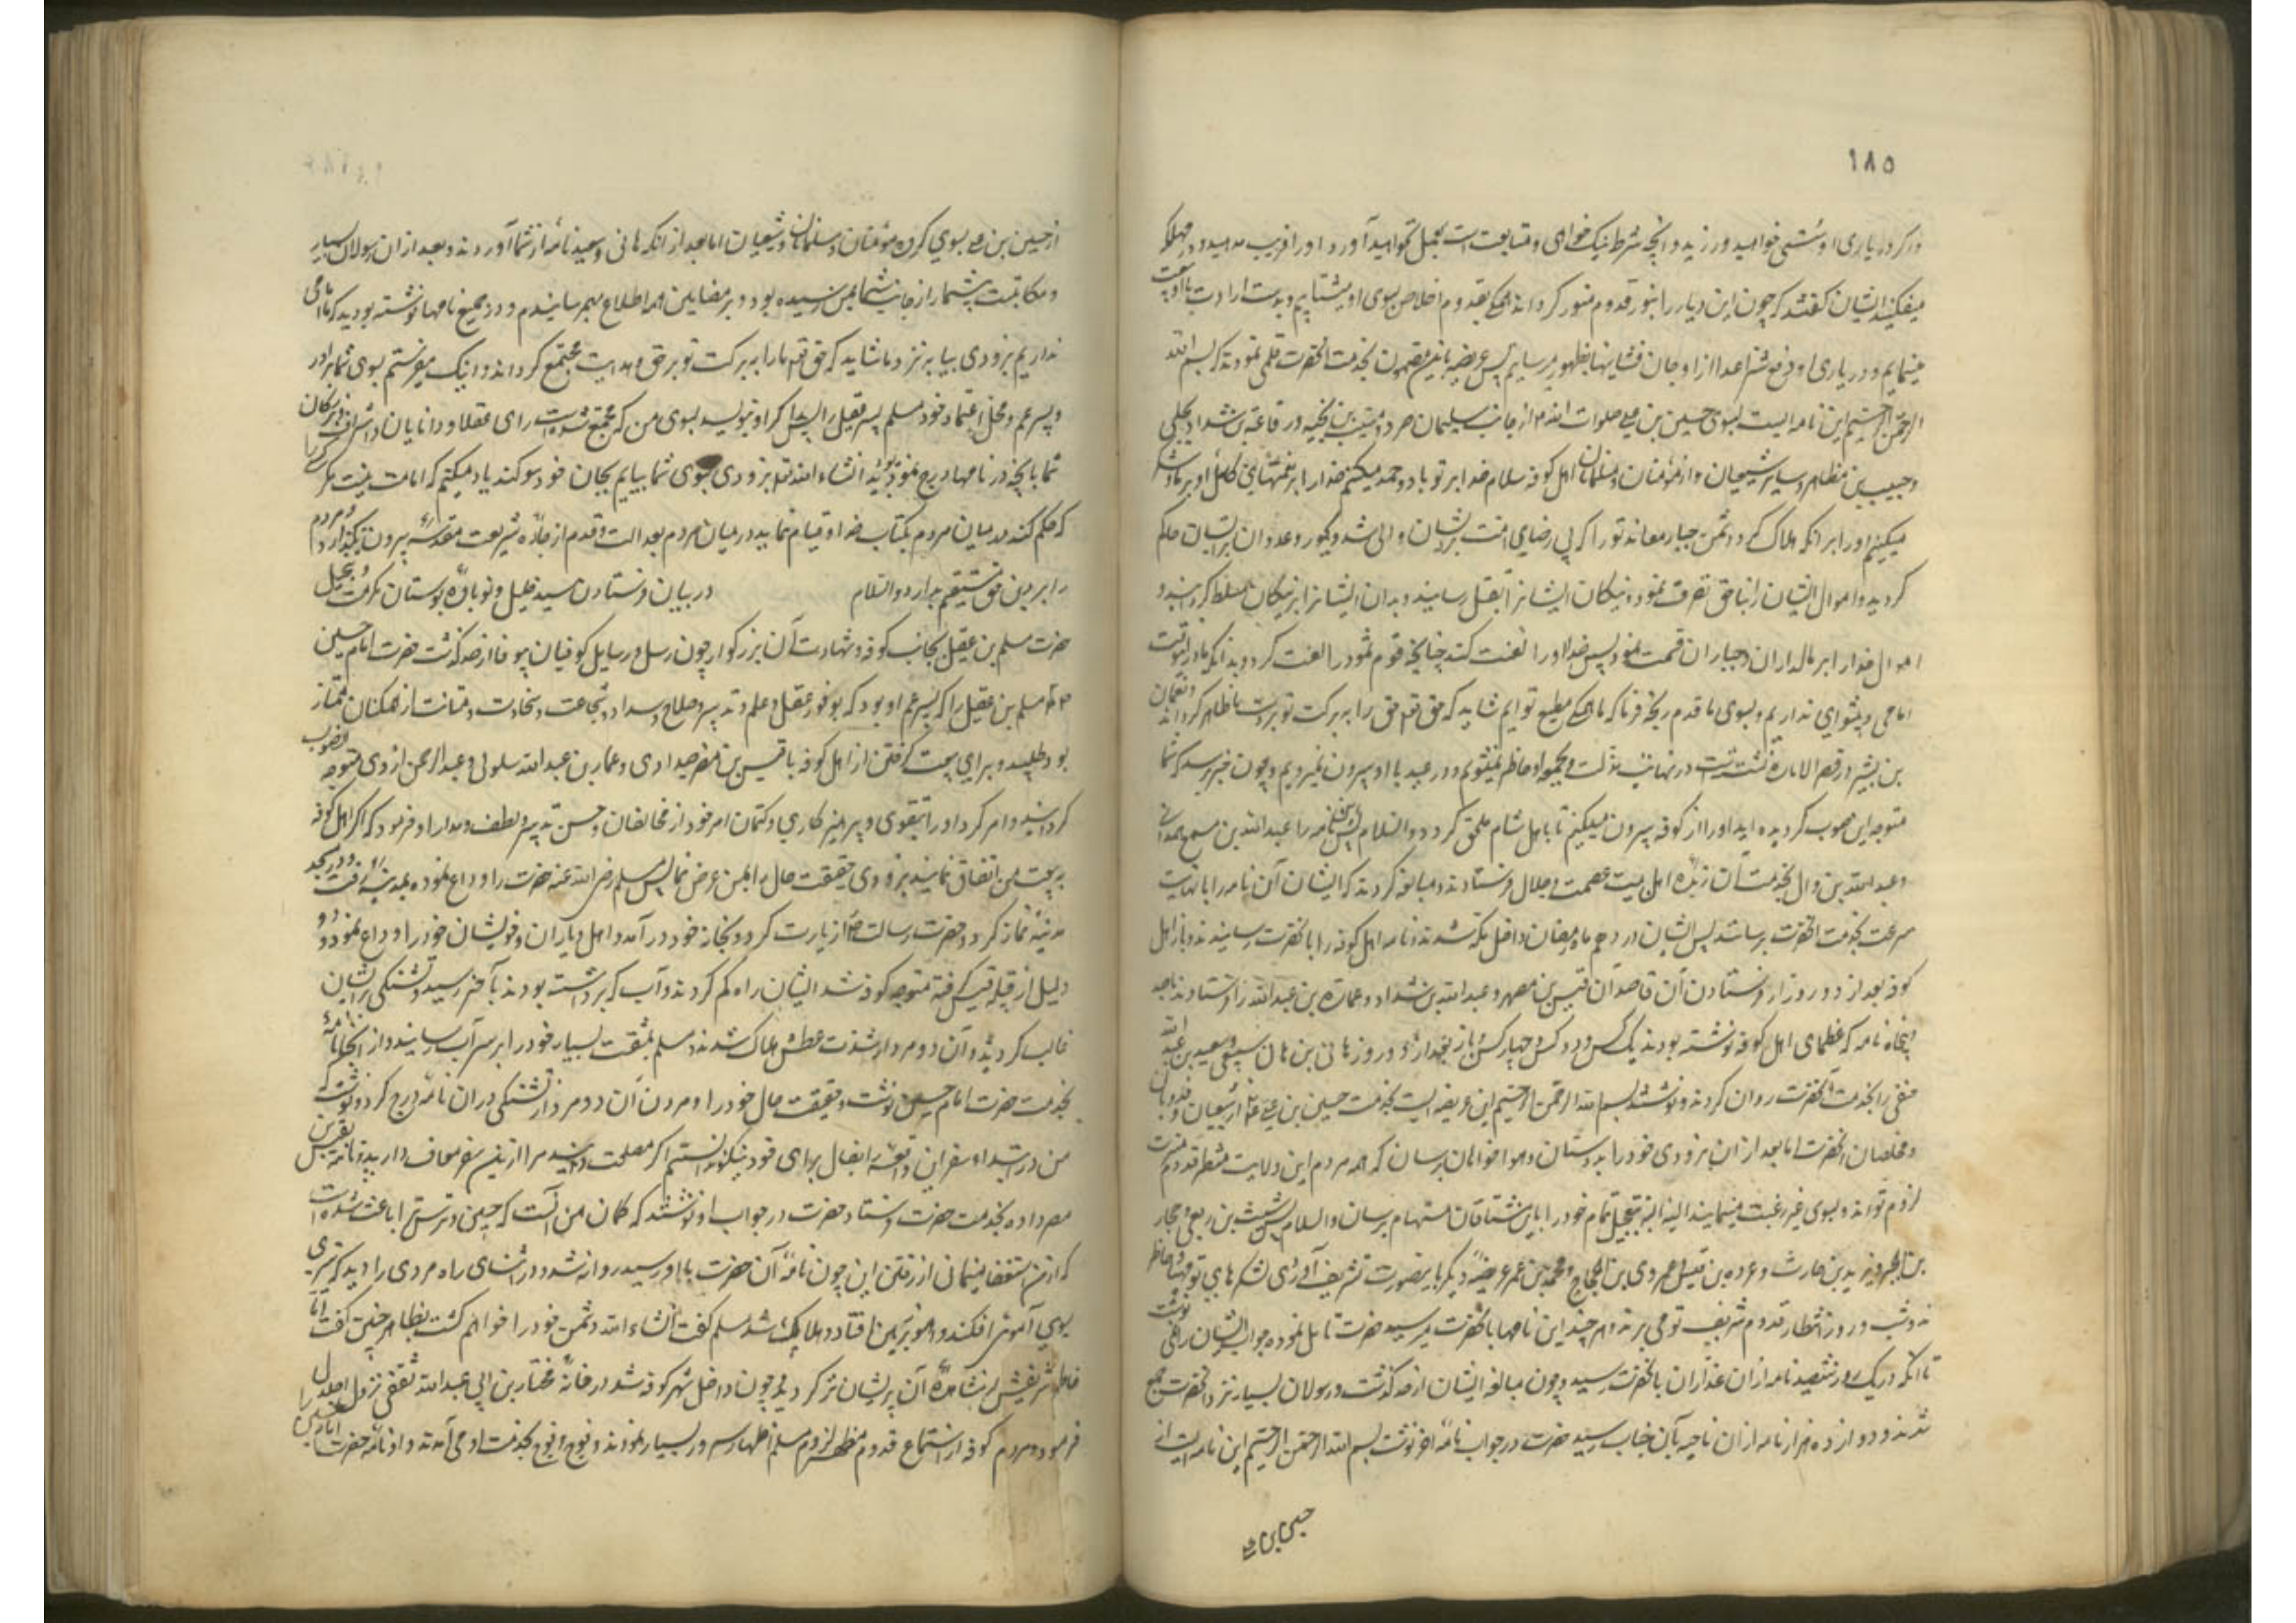 ۱۸۵
و اگر در یاری او سستی خواهید ورزید و آنچه شرط نیک خواهی و متابعت است بعمل نخواهید آورد او را فریب مدهید و در مهلکه
میفکنید ایشان گفتند که چون این دیار را بنور قدوم منور گرداند همگی بقدم اخلاص بسوی او بشتابیم و بدست ارادت با او بیعت
مینمائیم و در یاری او و دفع شر اعدا از او جان فشانیها بظهور میرسانیم پس عریضه باین مضمون بخدمت آنحضرت قلمی نمودند که بسم الله
الرحمن الرحیم این نامه ایست بسوی حسین بن علی صلوات الله از جانب سلیمان صرد و مسیب بن نجبه و رفاعة بن شداد بجلی
و حبیب بن مظاهر و سایر شیعیان و از مؤمنان و مسلمانان اهل کوفه سلام خدا بر تو باد و حمد میکنیم خدا را بر نعمتهای کامل او بر ما و شکر
میکنیم او را بر آنکه هلاک کرد دشمن جبار معاند تو را که بی رضای امت بر ایشان والی شد و بجور و عدوان بر ایشان حاکم
گردید و اموال ایشان را بناحق تصرف نمود و نیکان ایشانرا بقتل رسانید و بدان ایشانرا بر نیکان مسلط گردانید و
اموال خدا را بر مالداران و جباران قسمت نمود پس خدا او را لعنت کند چنانچه قوم ثمود را لعنت کرد و بدانکه ما در اینوقت
امامی و پیشوای نداریم و بسوی ما قدم رنجه فرما که ما همگی مطیع توایم شاید که حق تعالی حق را به برکت تو بر دست ما ظاهر گرداند و نعمان
بن بشیر در قصر الاماره نشسته است در نهایت مذلت و بجمعه او حاضر نمیشویم و در عید با او بیرون نمیرویم و چون خبر رسد که شما
متوجه این صوب گردیده اید او را از کوفه بیرون میکنیم تا باهل شام ملحق گردد والسلام پس این نامه را عبدالله بن مسمع همدانی
و عبدالله بن وال بخدمت آن زبده اهل بیت عصمت و جلال فرستادند و مبالغه کردند که ایشان آن نامه را با نهایت
سرعت بخدمت آنحضرت برسانند پس ایشان در دهم ماه رمضان داخل مکه شدند و نامه اهل کوفه را بانحضرت رسانیدند و باز اهل
کوفه بعد از دو روز از فرستادن آن قاصدان قیس بن مصهر و عبدالله بن شداد و عمارة بن عبدالله را فرستادند با صد
پنجاه نامه که عظمای اهل کوفه نوشته بودند یک کس و دو کس و چهار کس و باز بعد از دو روز هانی بن هانی سبیعی و سعید بن عبدالله
حنفی را بخدمت آنحضرت روان کردند و نوشتند بسم الله الرحمن الرحیم این عریضه ایست بخدمت حسین بن علی از شیعیان و فدویان
و مخلصان آنحضرت اما بعد از ان بزودی خود را بدوستان و هواخواهان برسان که همه مردم این ولایت منتظر قدوم مسرت
لزوم تواند و بسوی غیر رغبت نمینمایند البته البته بتعجیل تمام خود را باین مشتاقان مستهام برسان والسلام پس شبث بن ربعی و حجار
بن ابجر و یزید بن حارث و عروه بن قیس و عمرو بن الحجاج و محمد بن عمر عریضه دیگر باینصورت تشریف آری لشکرهای تو مهیا و حاضر
اند و شب و روز انتظار قدوم شریف تو می برند و هر چند این نامها بانحضرت میرسید حضرت تامل نموده جواب ایشان را نمی نوشت
تا آنکه در یک روز ششصد نامه از ان غداران بانحضرت رسید و چون مبالغه ایشان از حد گذشت و رسولان بسیار نزد آنحضرت جمع
شدند و دوازده هزار نامه از ان ناحیه بآن جناب رسید حضرت در جواب نامه آخر نوشت بسم الله الرحمن الرحیم این نامه ایست
از حسین بن علی بسوی گروه مؤمنان و مسلمانان و شیعیان اما بعد از آنکه هانی و سعید نامه از شما آوردند و بعد از ان رسولان بسیار
و مکاتبت بیشمار از جانب شما بمن رسیده بود و بر مضامین همه اطلاع بهم رسانیدم و در جمیع نامها نوشته بودید که ما امامی
نداریم بزودی بیا به نزد ما شاید که حق تعالی ما را به برکت تو بر حق و هدایت مجتمع گرداند و اینک میفرستم بسوی شما برادر
و پسر عم و محل اعتماد خود مسلم پسر عقیل را پس اگر او بنویسد بسوی من که مجتمع شده است رای عقلا و دانایان و اشراف و بزرگان
شما بانچه در نامها درج نموده بودید انشاء الله تعالی بزودی بسوی شما بیایم بجان خود سوگند یاد میکنم که امامت نیست مگر کسی را
که حکم کند در میان مردم بکتاب خدا و قیام نماید در میان مردم بعدالت و قدم از جاده شریعت مقدسه بیرون نگذارد و مردم
را بر دین حق مستقیم بدارد والسلام در بیان فرستادن سید جلیل و نوباوه بوستان مکرمت و تبجیل
حضرت مسلم بن عقیل بجانب کوفه و شهادت آن بزرگوار چون رسل و رسایل کوفیان بیوفا از حد گذشت حضرت امام حسین
مسلم بن عقیل را که پسر عم او بود که بوفور عقل و علم و تدبیر و صلاح و سداد و شجاعت و سخاوت و متانت از همگنان ممتاز
بود طلبید و برای بیعت گرفتن از اهل کوفه با قیس بن مصهر صیداوی و عمار بن عبدالله سلولی و عبدالرحمن ازدی متوجه آنصوب
گردانید و امر کرد او را بتقوی و پرهیزکاری و کتمان امر خود از مخالفان و حسن تدبیر و لطف و مدارا و فرمود که اگر اهل کوفه
به بیعت من اتفاق نمایند بزودی حقیقت حال را بمن عرض نما پس مسلم رضی الله عنه حضرت را وداع نموده بمدینه رفت و در مسجد
مدینه نماز کرد و حضرت رسالت را زیارت کرد و بخانه خود در آمد و اهل و یاران و خویشان خود را وداع نمود و دو
دلیل از قبیله قیس گرفته متوجه کوفه شد ایشان راه گم کردند و آب که برداشته بودند بآخر رسید و تشنگی بر ایشان
غالب گردید و آن دو مرد از شدت عطش هلاک شدند مسلم بمشقت بسیار خود را بر سر آب رسانید و از آنجا نامه
بخدمت حضرت امام حسین نوشت و حقیقت حال خود را و مردن آن دو مرد از تشنگی در ان نامه درج کرد و نوشت که
من در ابتداء سفر این واقعه را بفال برای خود نیکو ندانستم اگر مصلحت دانید مرا ازین سفر معاف دارید و نامه بقیس بن
مصهر داده بخدمت حضرت فرستاد حضرت در جواب او نوشتند که گمان من آنست که جبن و ترس ترا باعث شده است
که از من استعفا مینمائی از رفتن این چون نامه آن حضرت باو رسید روانه شد و در اثنای راه مردی را دید که تیری
بسوی آهوئی افکند و آهو بر زمین افتاد و هلاک شد مسلم گفت انشاء الله دشمن خود را خواهم کشت بظاهر چنین گفت اما
خاطر شریفش از مشاهده آن پریشان تر گردید چون داخل شهر کوفه شد در خانه مختار بن ابی عبدالله ثقفی نزول اجلال
فرمود و مردم کوفه از استماع قدوم مسلم اظهار سرور بسیار نمودند و فوج فوج بخدمت او می آمدند و او نامه حضرت امام حسین را